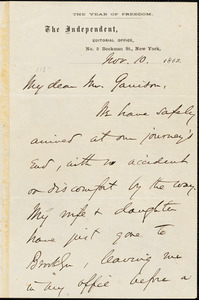 THE YEAR OF FREEDOM.
The Independent,
EDITORIAL OFFICE,
No. 5 Beekman St., New York,
Nov. 10, 186
My dear Mr. Garrison,
We have safely
arrived at our journey's
end, with no accident
or discomfort by the way.
My wife & daughter
have just gone to
Brooklyn, leaving me
in my office before a